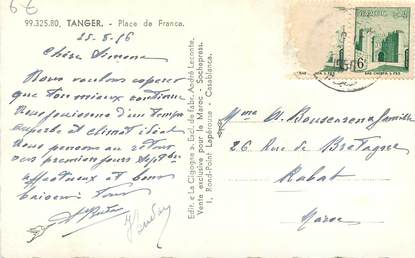 6€
99.325.80, TANGER. - Place de France.
25-8-56
Chère Simone
Nous voulons espérer
que ton mieux continue
Nous jouissons d'un temps
superbe et climat idéal
Nous pensons au retour
vers premiers jours Septbre
affectueux et bons
baisers à tous
Edit. « La Cigogne ». Excl. de fabr. André Leconte.
Vente exclusive pour le Maroc - Sochepress.
1, Rond-Point Lapérouse - Casablanca.
MAROC
BAB CHORFA A FES
Mme et famille
26 Rue de Bretagne
Rabat
Maroc